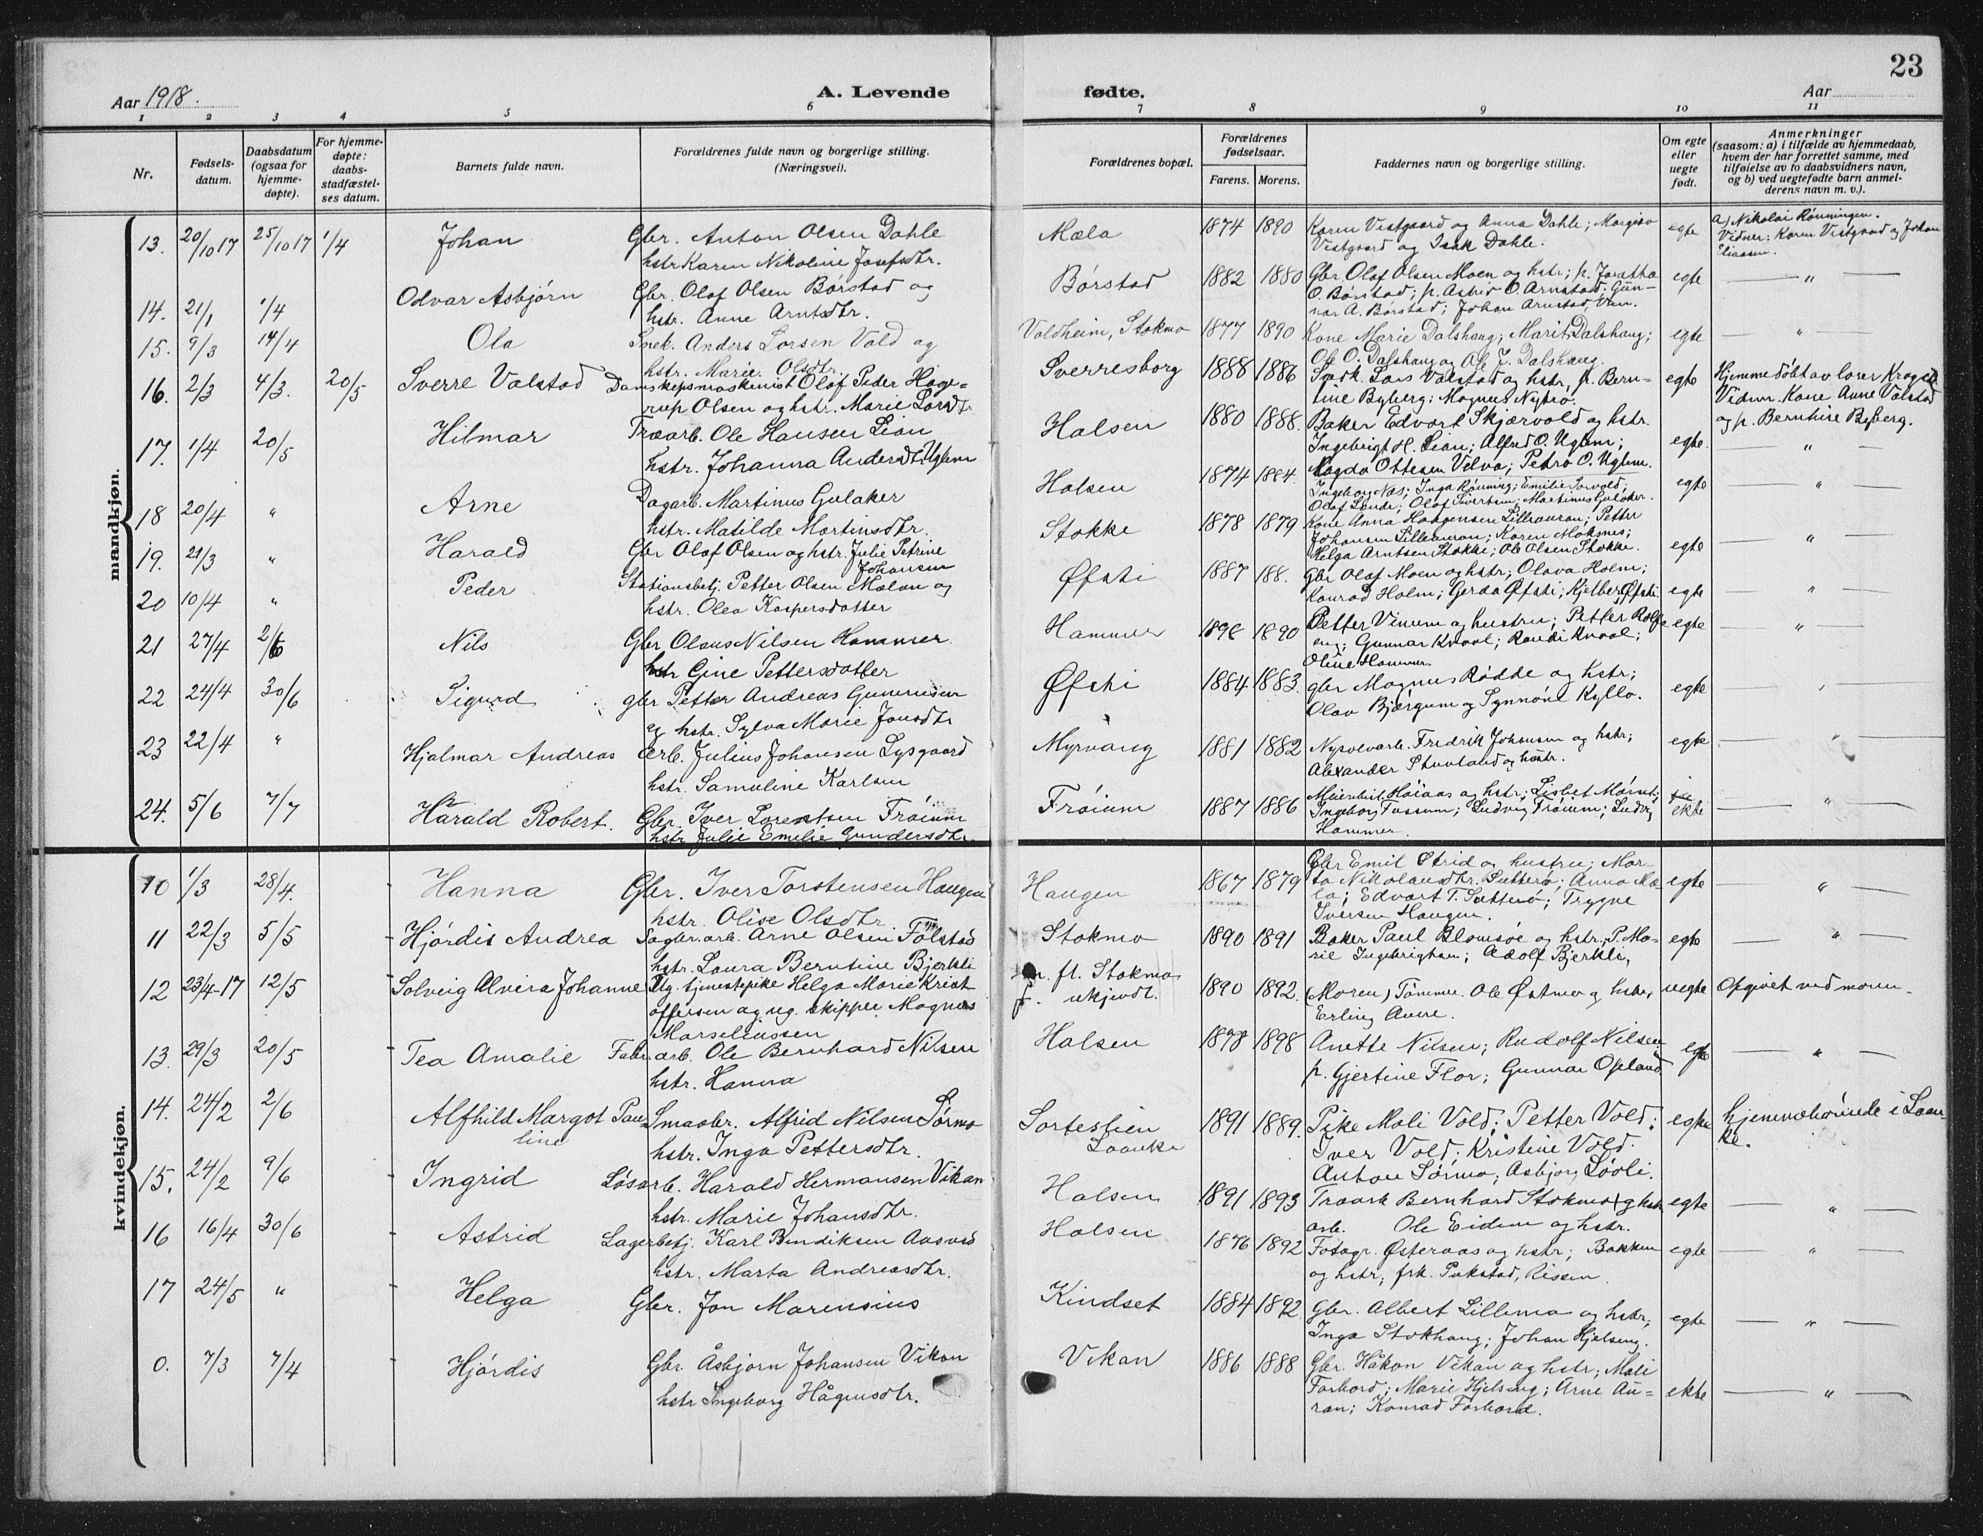 23
Aar 1918.
A. Levende
fødte.
Aar
1 2 3 4 5 6 7 8 9 10 11
Nr.
Fødsels-
datum.
Daabsdatum
(ogsaa for
hjemme-
døpte).
For hjemme-
døpte:
daabs-
stadfæstel-
ses datum.
Barnets fulde navn.
Forældrenes fulde navn og borgerlige stilling.
(Næringsvei).
Forældrenes bopæl.
Forældrenes
fødselsaar.
Farens. Morens.
Faddernes navn og borgerlige stilling.
Om egte
eller
uegte
født.
Anmerkninger
(saasom: a) i tilfælde av hjemmedaab,
hvem der har forrettet samme, med
tilføielse av to daabsvidners navn,
og b) ved uegtefødte barn anmel-
derens navn m. v.).
mandkjøn.
13. 20/10 17 25/10 17 1/4 Johan Gbr. Anton Olsen Dahle Mæla 1874 1890 Karen Vistgaard og Anna Dahle; Margido egte a) Nikolai Rønningen.
hstr Karen Nikoline Josefsdtr. Vistgaard og Isak Dahle. Vidner: Karen Vistgaard og Johan
Eliassen.
14. 21/1 1/4 Odvar Asbjørn Gbr. Olaf Olsen Børstad og Børstad 1882 1880 Gbr Olaf Olsen Moen og hstr; p. Joratha egte — " —
hstr. Anne Arntsdtr. O. Børstad; p. Astrid O. Arnstad; Gun-
nar A. Børstad; Johan Arnstad,
15. 9/3 14/4 Ola Snek. Anders Larsen Vold og Voldheim, Stokmo 1877 1890 Kone Marie Dalshaug; Marit Dalshaug; egte — " —
hstr. Marie Olsdtr. Ole O. Dalshaug og Ole J. Dalshaug.
16. 2/3 4/3. 20/5 Sverre Valstad Dampskepsmaskinist Olaf Peder Hage- Sverresborg 1888 1886 Lars Valstad og hstr, p. Bern- egte Hjemmedøbt av lærer Kragset
rup Olsen og hstr. Marie Larsdtr tine Byberg; Magnus Nydro. Vidner. Kone Anne Valstad
og p. Berntine Byberg.
17. 1/4 20/5 Hilmar Træarb. Ole Hansen Lian Halsen 1880 1888. Baker Edvart Skjærvold og hstr. egte. — " —
hstr. Johanna Andersdtr. Uglem Ingebrigt H. Lian; Alfred O. Uglem;
Magda Ottesen Velva; Petra O. Uglem.
18 20/4 " Arne Dagarb. Martinus Gulaker Halsen 1874 1884. Ingeborg Næs; Inga Rønning; Emilie egte — " —
hstr. Matilde Martinsdtr. Olaf Lunde; Olaf Sivertsen; Martinus Gulaker.
19. 21/3 " Harald Gbr Olaf Olsen og hstr. Julie Petrine Stokke 1878 1879 Kone Anna Haagensen Lilleauran; Petter egte — " —
Johansen Johansen Lilleauran; Karen Moksnes;
Helga Arntsen Stokke; Ole Olsen Stokke.
20 10/4 " Peder Stationsbetj. Petter Olsen Malan og Øfsti 1887 188. Gbr Olaf Moen og hstr; Olava Holm; egte — " —
hstr. Olea Kaspersdatter Konrad Holm; Gerda Øfsti; Kjelber Øfsti.
21 27/4 2/6 Nils Gbr Olaus Nilsen Hammer Hammer 1898 1890 Petter Vinum og hustru; Petter Rolfs- egte — " —
hstr Gine Pettersdatter eng; Gunnar Kvaal; Randi Kvaal;
Oline Hammer
22 24/4 30/6 Sigurd gbr Petter Andreas Gunnersen Øfsti 1884. 1883. gbr Magnus Rødde og hstr; egte — " —
og hstr. Sylva Marie Jonsdtr Olav Bjørgum og Synnøve Kyllo.
23 22/4 " Hjalmar Andreas Arb. Julius Johansen Lysgaard Myrvang 1881 1882 Nysolvarb. Fredrik Johansen og hstr; egte — " —
hstr. Samuline Karlsen Alexander Stuvland og hustr.
24. 5/6 7/7 Harald Robert. Gbr. Iver Lorentsen Frøium Frøium 1887 1886 Meieribest. Haaas og hstr; Lisbet ekte — " —
hstr Julie Emelie Gundersdtr. Ingeborg Fossum; Ludvig Frøium; Ludvig
Hammer.
kvindekjøn.
10 1/3 28/4. Hanna Gbr. Iver Torstensen Haugen Haugen 1867 1879 Gbr Emil Strid og hustru; Mar- egte — " —
hstr. Olise Olsdtr. ta Nikolausdtr. Sutterø; Anna Mæ-
la; Edvart T. Sutterø; Trygve
Iversen Haugen.
11 22/3 5/5 Hjørdis Andrea Sagbr.arb. Arne Olsen Folstad Stokmo 1890 1891 Baker Paul Blomsøe og hstr, P. Ma- egte — " —
hstr. Laura Berntine Bjerkli rie Ingebrigtsen; Adolf Bjerkli,
12 23/4-17 12/5 Solveig Alvira Johanne Ug. tjenestepike Helga Marie Krist- m. fl. Stokmo 1890 1892. (Moren) Tømmer. Ole Østmo og hstr, uegte Opgivet ved moren.
offersen og ug. skipper Magnus f. ukjendt. Erling Avre.
Marseliussen
13. 29/3 20/5 Tea Amalie Fabr.arb. Ole Bernhard Nilsen Halsen 1898 1898 Anette Nilsen; Rudolf Nilsen; egte — " —
hstr. Hanna p. Gjertine Flor; Gunnar Opland
14. 24/2 2/6 Alfhild Margot Pau- Smaabr. Alfrid Nilsen Sørmo Sortestien 1891 1889. Pike Mali Vold; Petter Vold; egte hjemmehørende i Laan-
line hstr. Inga Pettersdtr. Laanke Iver Vold; Kristine Vold. ke.
Anton Sørmo; Asbjørn Løvli.
15. 24/2 9/6 Ingrid Løsarb. Harald Hermansen Vikan Halsen 1891 1893 Træark Bernhard Stokmo og hstr egte — " —
hstr. Marie Johansdtr. arb. Ole Eidem og hstr.
16 16/4 30/6 Astrid Lagerbetj. Karl Bendiksen Aasved Halsen 1876 1892 Fotogr. Østeraas og hstr; Bakken egte — " —
hstr. Marta Andreasdtr. og hstr; frk. Pukstad, Rissen.
17 24/5 " Helga Gbr. Jon Marensius Kindset 1884 1892 Gbr. Albert Lillemo og hstr, egte — " —
Inga Stokhaug; Johan Hjelseng.
0. 7/3 7/4 Hjørdis Gbr Åsbjørn Johansen Vikan Vikan 1886 1888 Gbr. Håkon Vikan og hstr; Mali ekte — " —
hstr Ingeborg Hågensdtr. Forbord; Marie Hjelseng; Arne Au-
ran; Konrad Forbord.